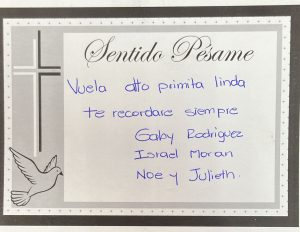 Sentido Pésame
Vuela alto primita linda
te recordare siempre
Gaby Rodriguez
Israel Moran
Noe y Julieth.